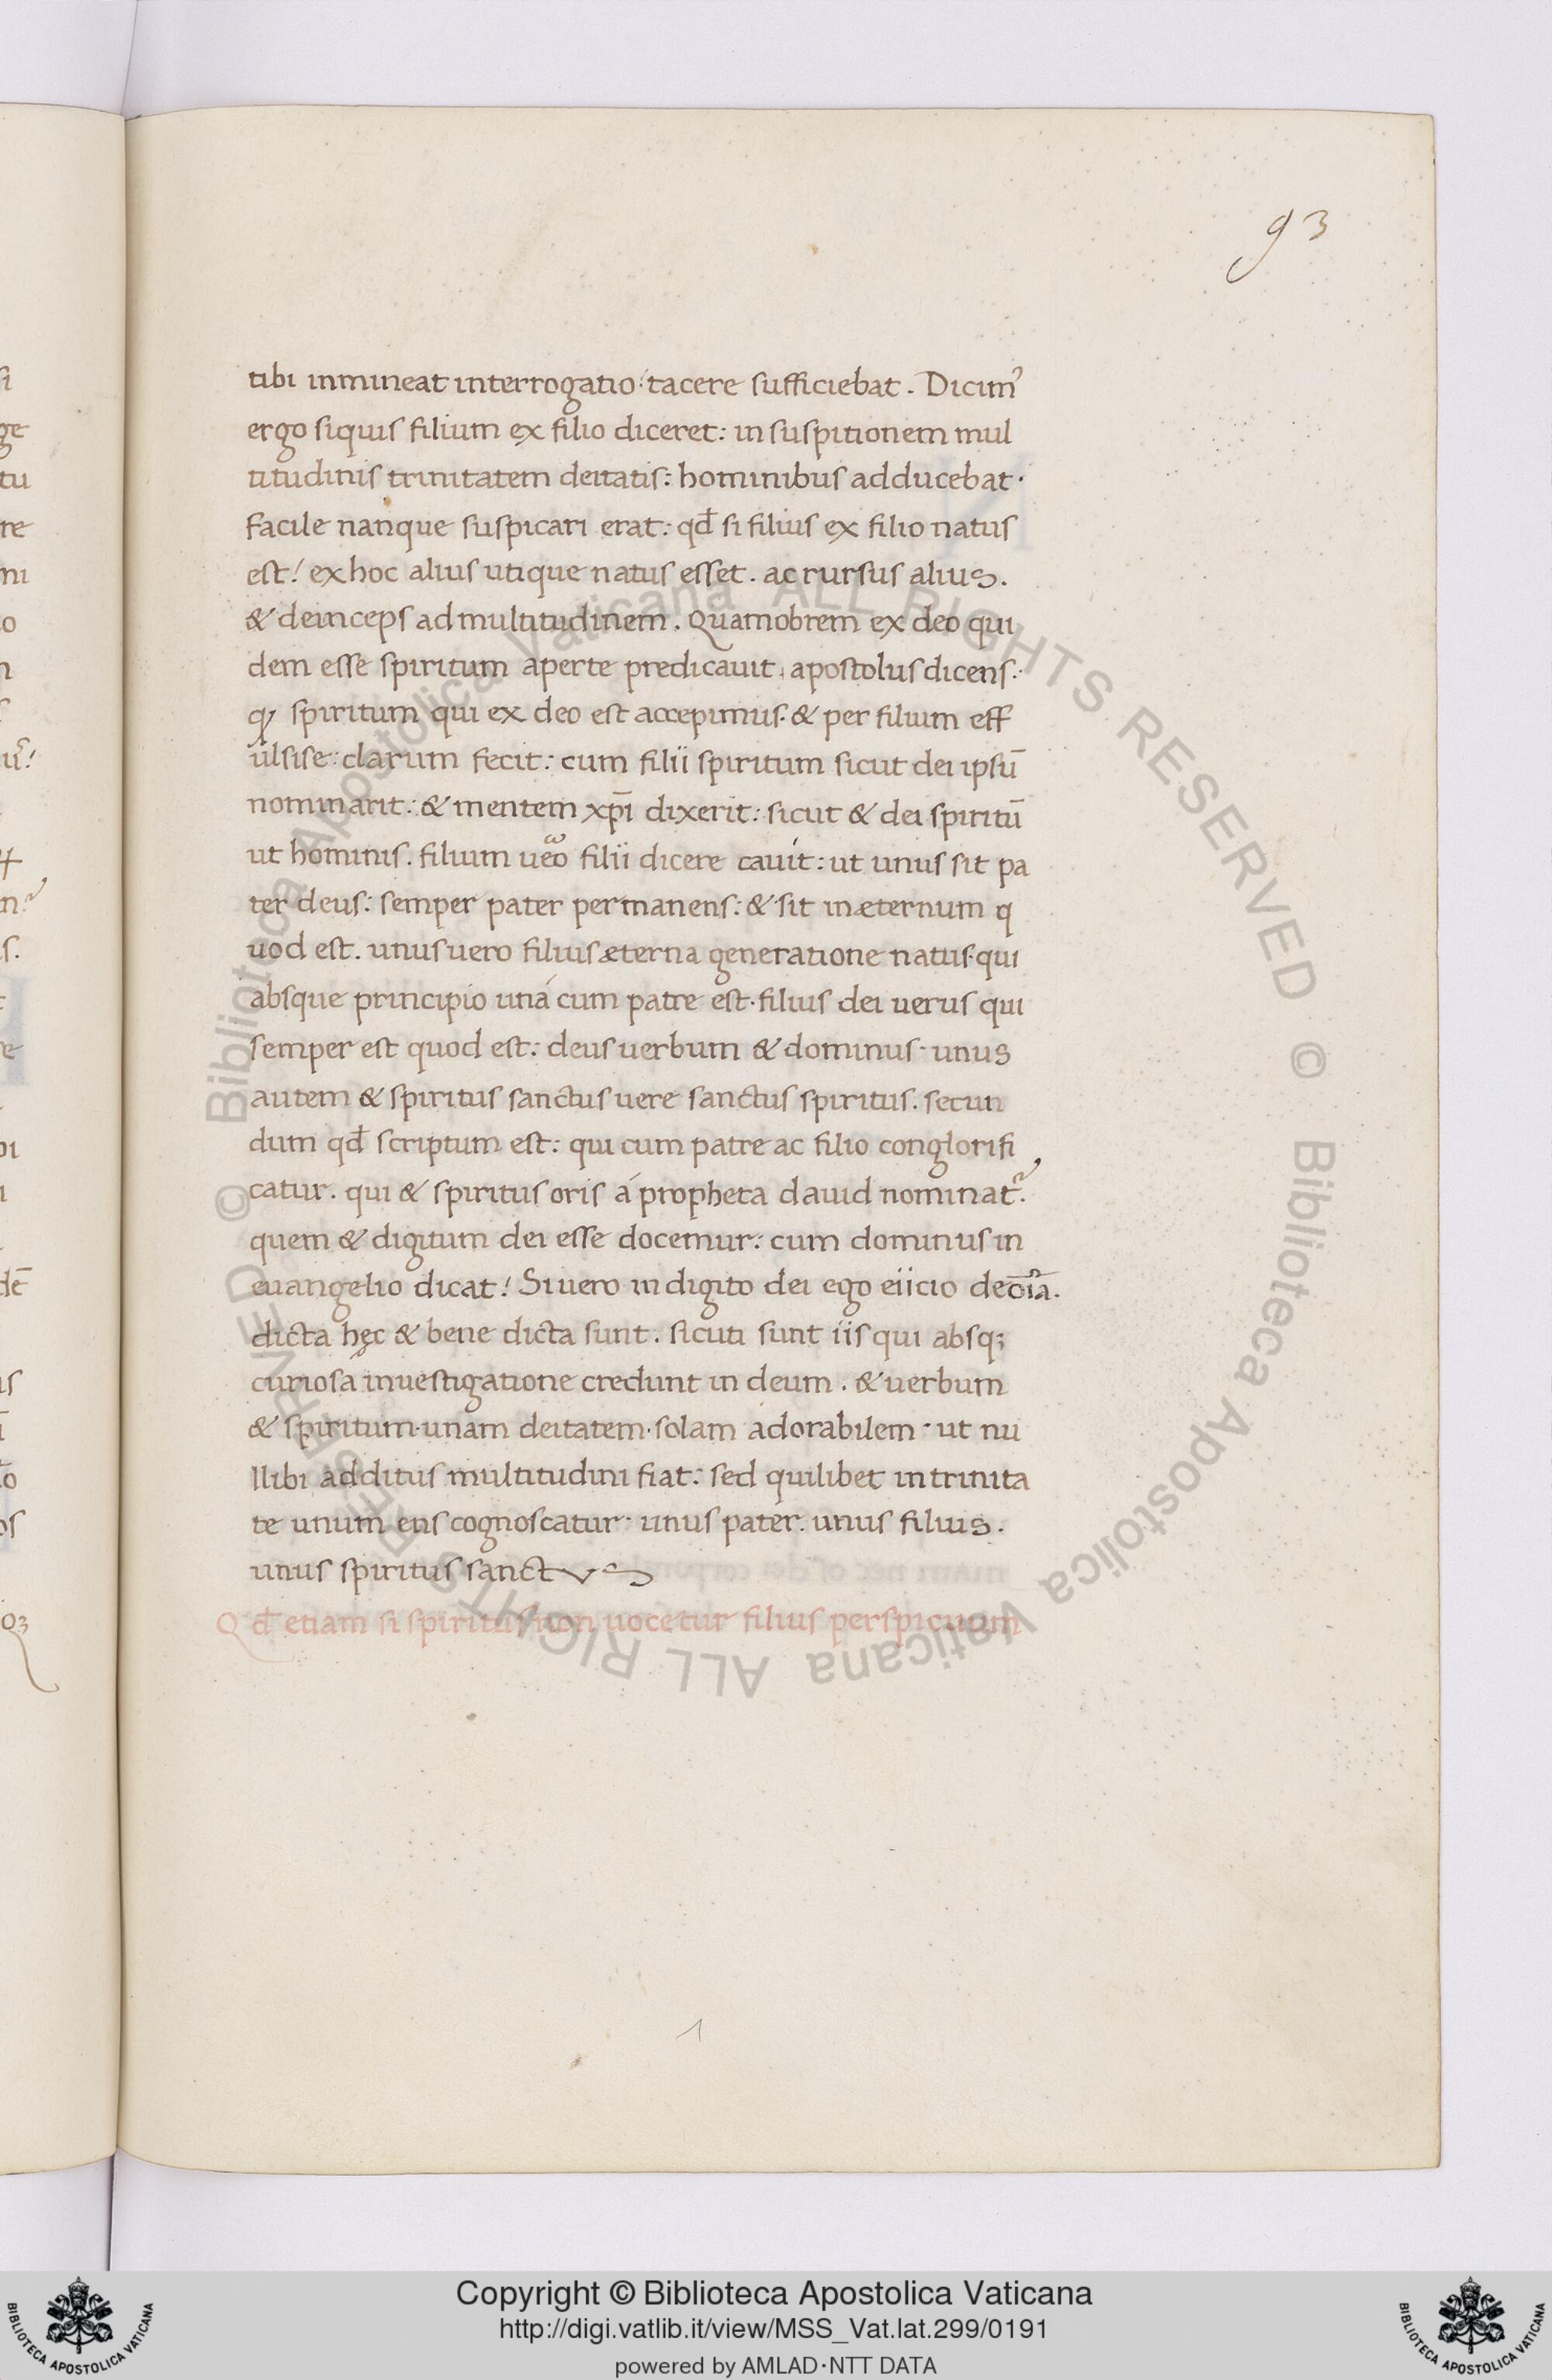 93
tibi inmineat interrogatio: tacere sufficiebat. Dicimꝰ
ergo siquis filium ex filio diceret: in suspitionem mul
titudinis trinitatem deitatis: hominibus adducebat.
facile nanque suspicari erat: qđ si filius ex filio natus
est! ex hoc alius utique natus esset. ac rursus alius.
& deinceps ad multitudinem. Quamobrem ex deo qui
dem esse spiritum aperte predicauit. apostolus dicens:
spiritum qui ex deo est accepimus. & per filium eff
ulsise: clarum fecit: cum filii spiritum sicut dei ipsū
nominarit: & mentem xp̄i dixerit: sicut & dei spiritū
ut hominis. filium ueo filii dicere cauit: ut unus sit pa
ter deus: semper pater permanens: & sit in æternum q
uod est. unus uero filius æterna generatione natus. qui
absque principio uná cum patre est. filius dei uerus qui
semper est quod est: deus uerbum & dominus. unus
autem & spiritus sanctus uere sanctus spiritus. secun
dum qđ scriptum est: qui cum patre ac filio conglorifi
catur. qui & spiritus oris á propheta dauid nominat᷑.
quem & digitum dei esse docemur: cum dominus in
euangelio dicat! Si uero in digito dei ego eiicio deōia.
dicta hęc & bene dicta sunt. sicuti sunt iis qui absqꝫ
curiosa inuestigatione credunt in deum. & uerbum
& spiritum. unam deitatem. solam adorabilem. ut nu
llibi additus multitudini fiat: sed quilibet in trinita
te unum ens cognoscatur. unus pater. unus filius.
unus spiritus sanctus
Qđ etiam si spiritus non uocetur filius perspicuum
© Biblioteca Apostolica Vaticana ALL RIGHTS RESERVED © Biblioteca Apostolica Vaticana ALL RIGHTS RESERVED
Copyright © Biblioteca Apostolica Vaticana
http://digi.vatlib.it/view/MSS_Vat.lat.299/0191
powered by AMLAD·NTT DATA
BIBLIOTECA APOSTOLICA VATICANA
BIBLIOTECA APOSTOLICA VATICANA